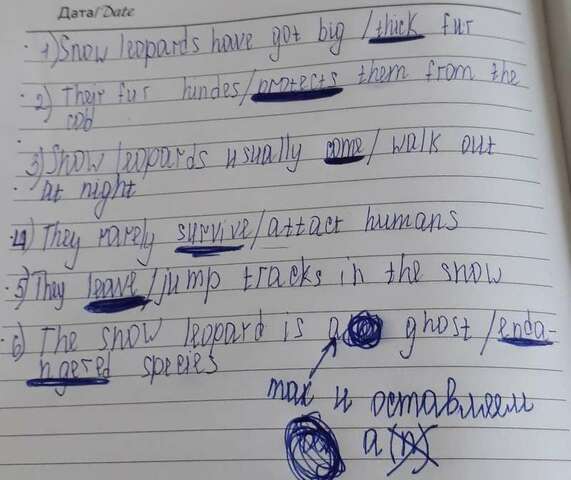 Дата/Date
1) Snow leopards have got big /thick fur
2) Their fur hindes/protects them from the
cob
3) Snow leopards usually come/ walk out
at night
4) They rarely survive/attact humans
5) They leave/jump tracks in the snow
6) The snow leopard is a ghost /enda-
ngered species
так и оставляем
a(n)